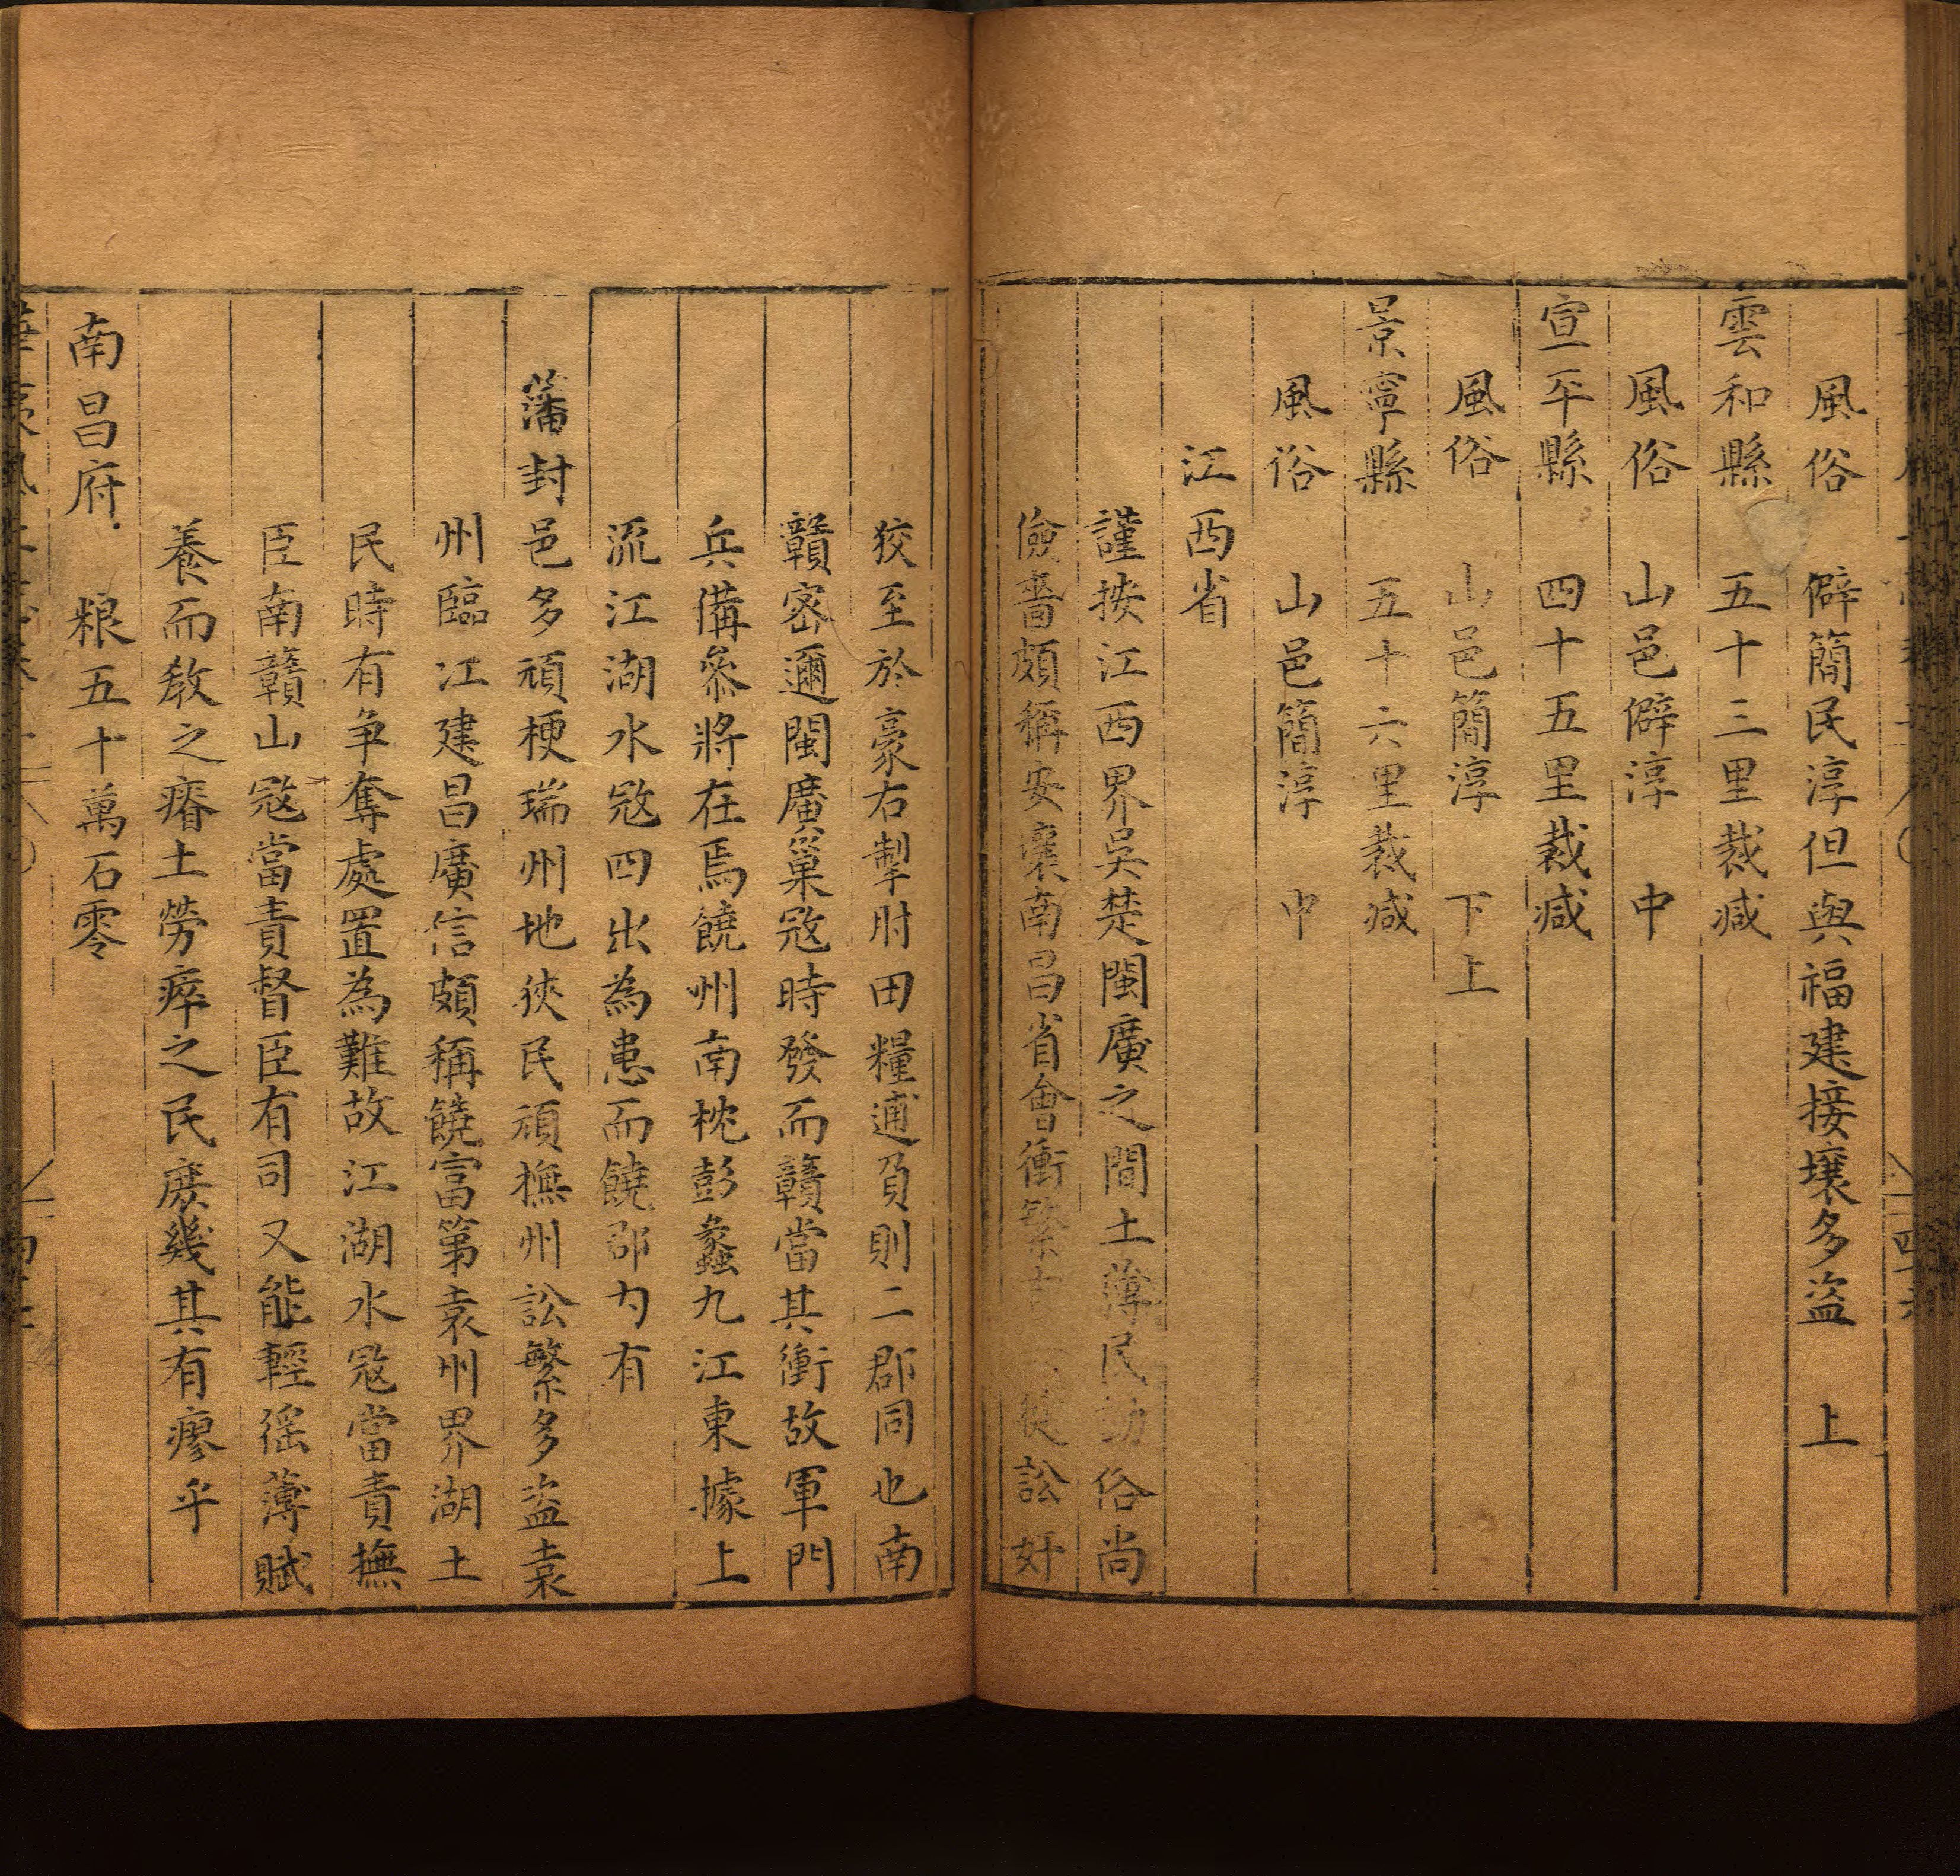 風俗 僻簡民淳但與福建接壤多盜 上
雲和縣 五十三里裁减
風俗 山邑僻淳 中
宣平縣 四十五里裁减
風俗 山邑簡淳 下上
景寧縣 五十六里裁减
風俗 山邑簡淳 中
江西省
謹按江西界吳楚閩廣之間土薄民勤俗尚
儉嗇頗稱安襄南昌省會衝繁 徤訟奸
狡至於豪右掣肘田糧逋負則二郡同也南
贛密邇閩廣巢㓂時發而贛當其衝故軍門
兵備叅將在焉饒州南枕彭蠡九江東據上
流江湖水㓂四出為患而饒郡內有
藩封邑多頑梗瑞州地狹民頑撫州訟繁多盜袁
州臨江建昌廣信頗稱饒富第袁州界湖土
民時有争奪處置為難故江湖水㓂當責撫
臣南贛山㓂當責督臣有司又能輕徭薄賦
養而教之瘠土勞瘁之民庻幾其有瘳乎
南昌府 粮五十萬石零